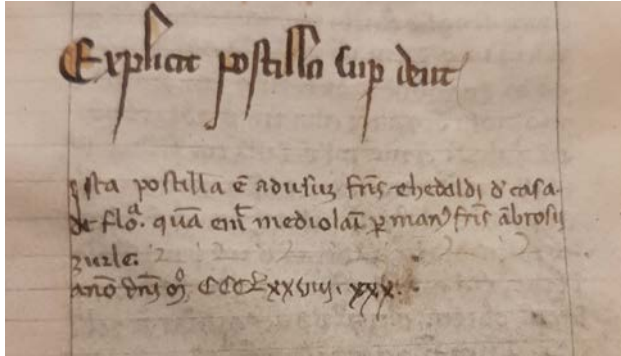 Explicit postilla sup deut
Ista postilla ē adusuȝ fr̄is thedaldi d' casa
de floª. quā emit mediolāī ꝑ manꝰ fr̄is ābrosii
zurle.
ānō dn̄i mº CCCLxxviiij. xxx.